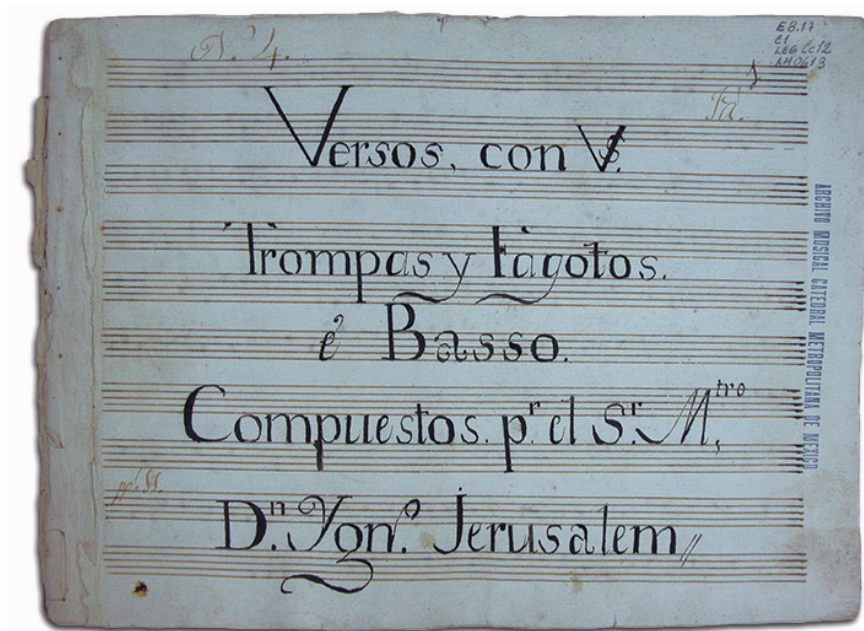 N.º 4.
E8.17
C1
LEG Cc12
AM0613
1
Versos, con Vs.
Trompas y Fagotos.
é Basso.
Compuestos. pr. el Sr. Mtro,
Dn. Ygno. Jerusalem
ARCHIVO MUSICAL CATEDRAL METROPOLITANA DE MEXICO